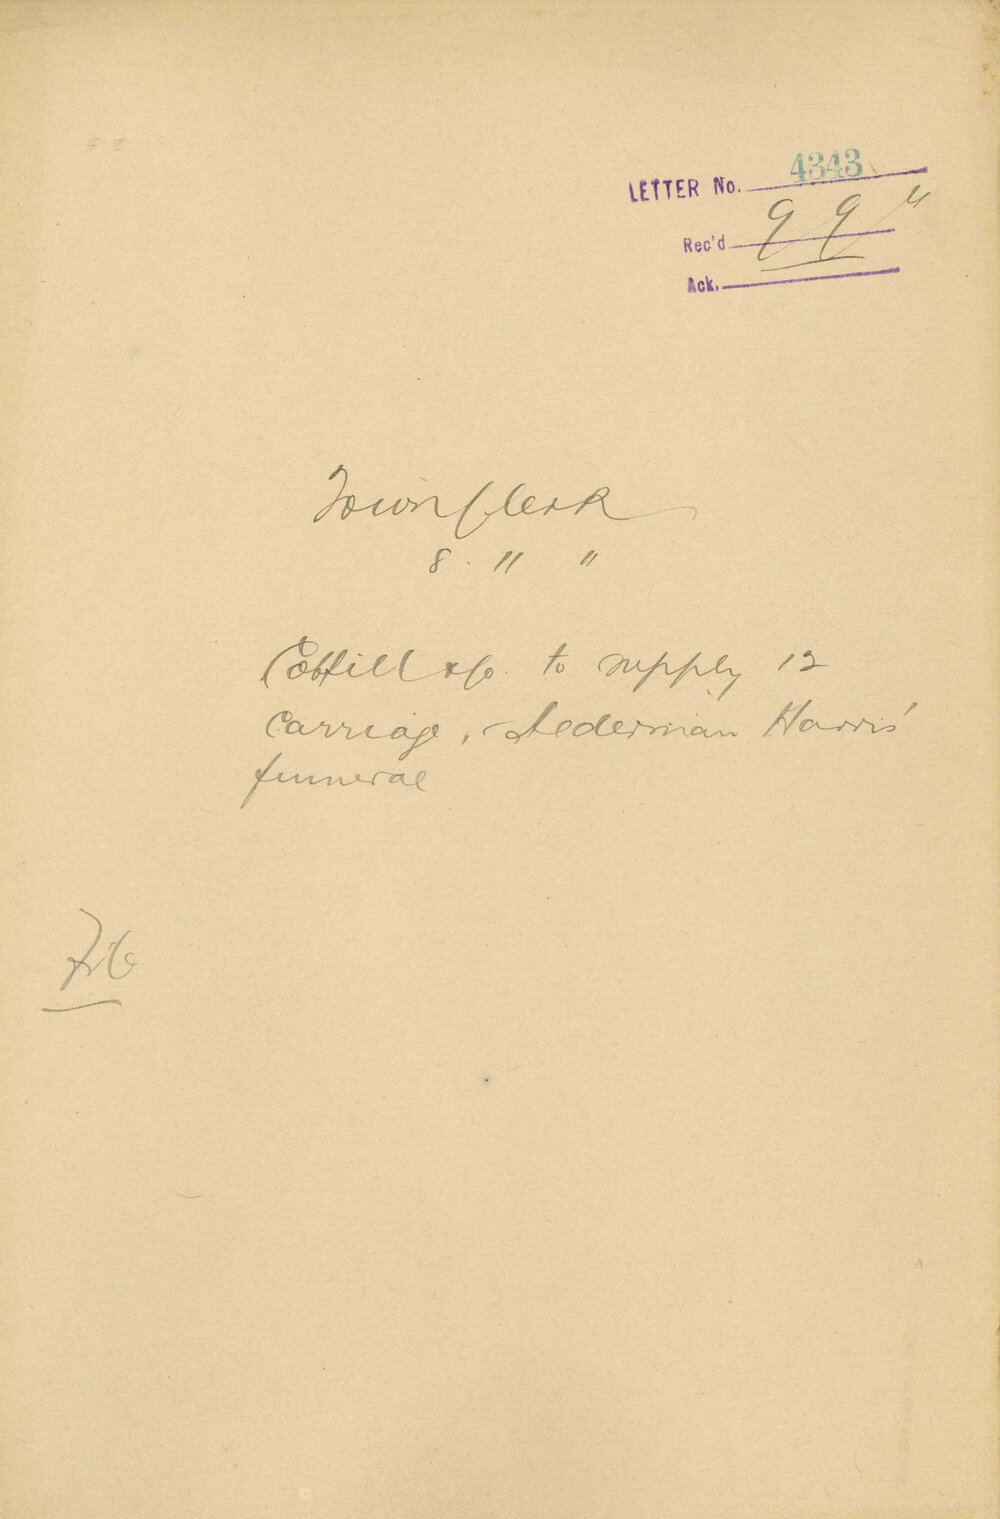 LETTER No. 4343
Rec'd 9 9 "
Ack.
Town Clerk
8. " "
Cottill & Co. to supply 12
carriage, Alderman Harris'
funeral